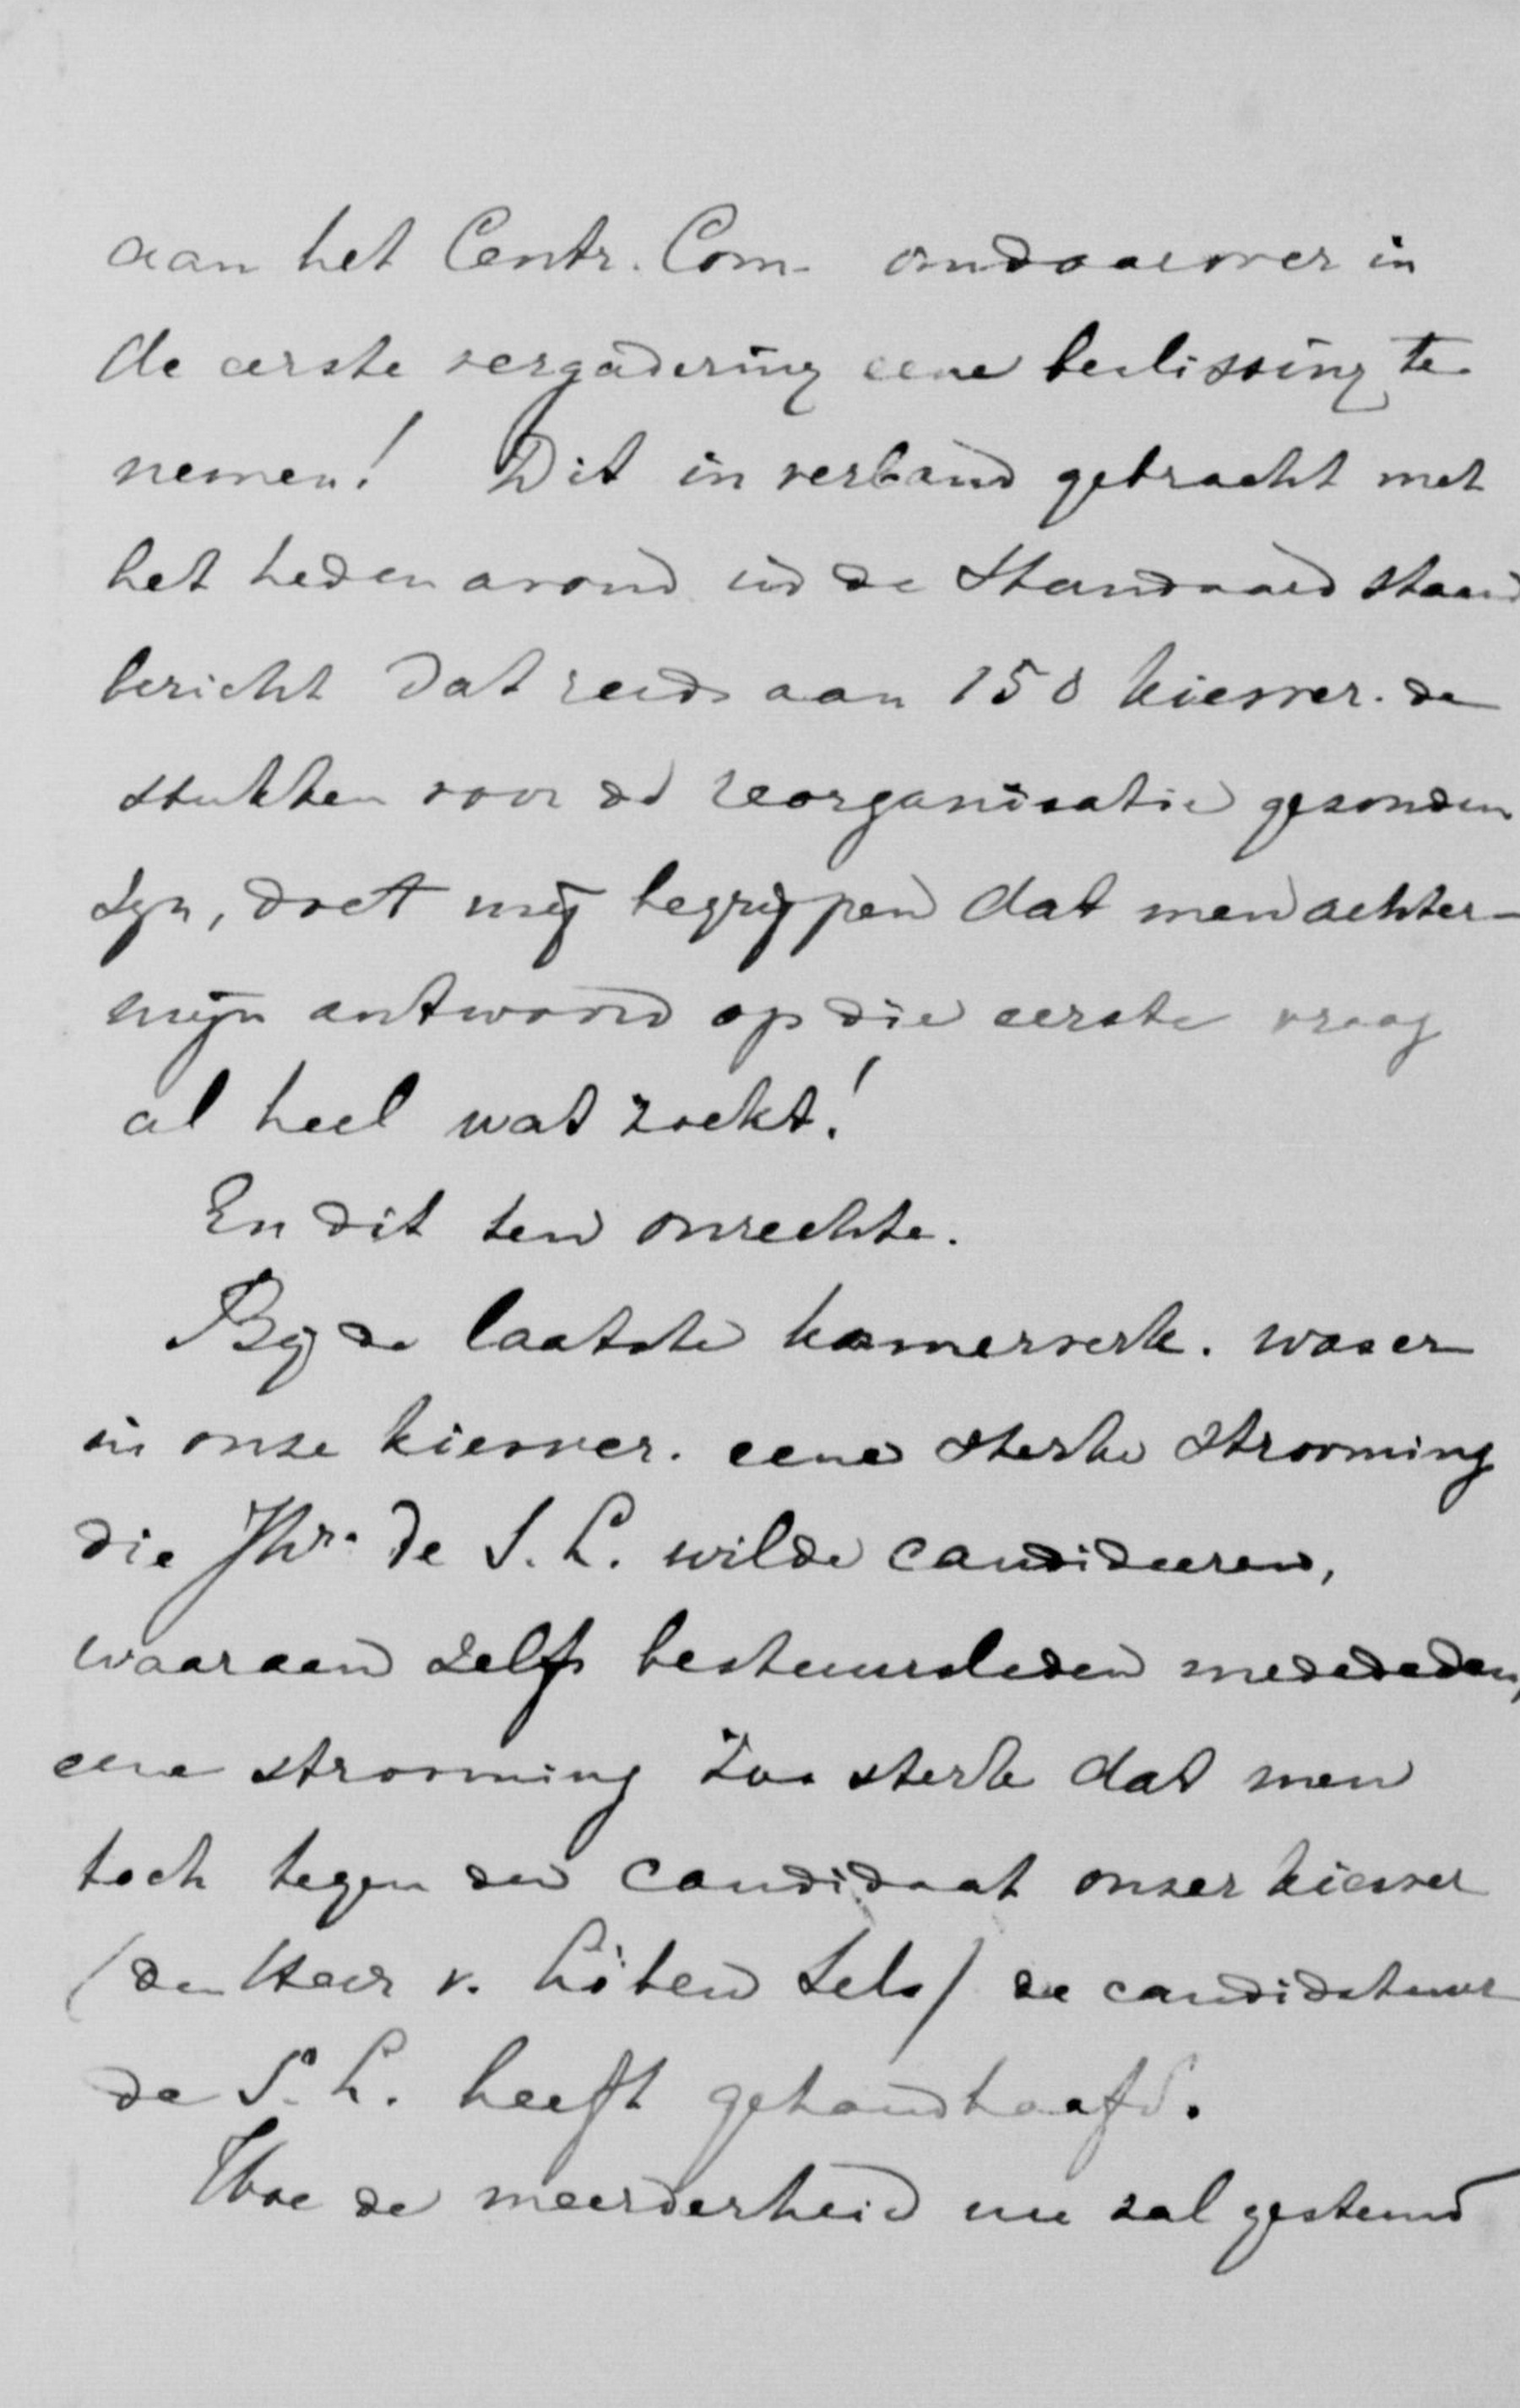 aan het Centr. Com. om daarover in
de eerste vergadering eene beslissing te
nemen! Dit in verband gebracht met
het heden avond in de Standaard staand
bericht dat reeds aan 150 kiesver. de
stukken voor de reorganisatie gezonden
zyn, doet mij begrijpen dat men achter
mijn antwoord op die eerste vraag
al heel wat zoekt!
En dit ten onrechte.
Bij de laatste kamerverk. was er
in onze kiesver. eene sterke strooming
die Jhr. de S. L. wilde candideeren,
waaraan zelfs bestuursleden medededen,
eene strooming zoo sterk dat men
toch tegen den candidaat onzer kiesver
(den Heer v. Löben Sels) de candidatuur
de S. L. heeft gehandhaafd.
Hoe de meerderheid nu zal gestemd